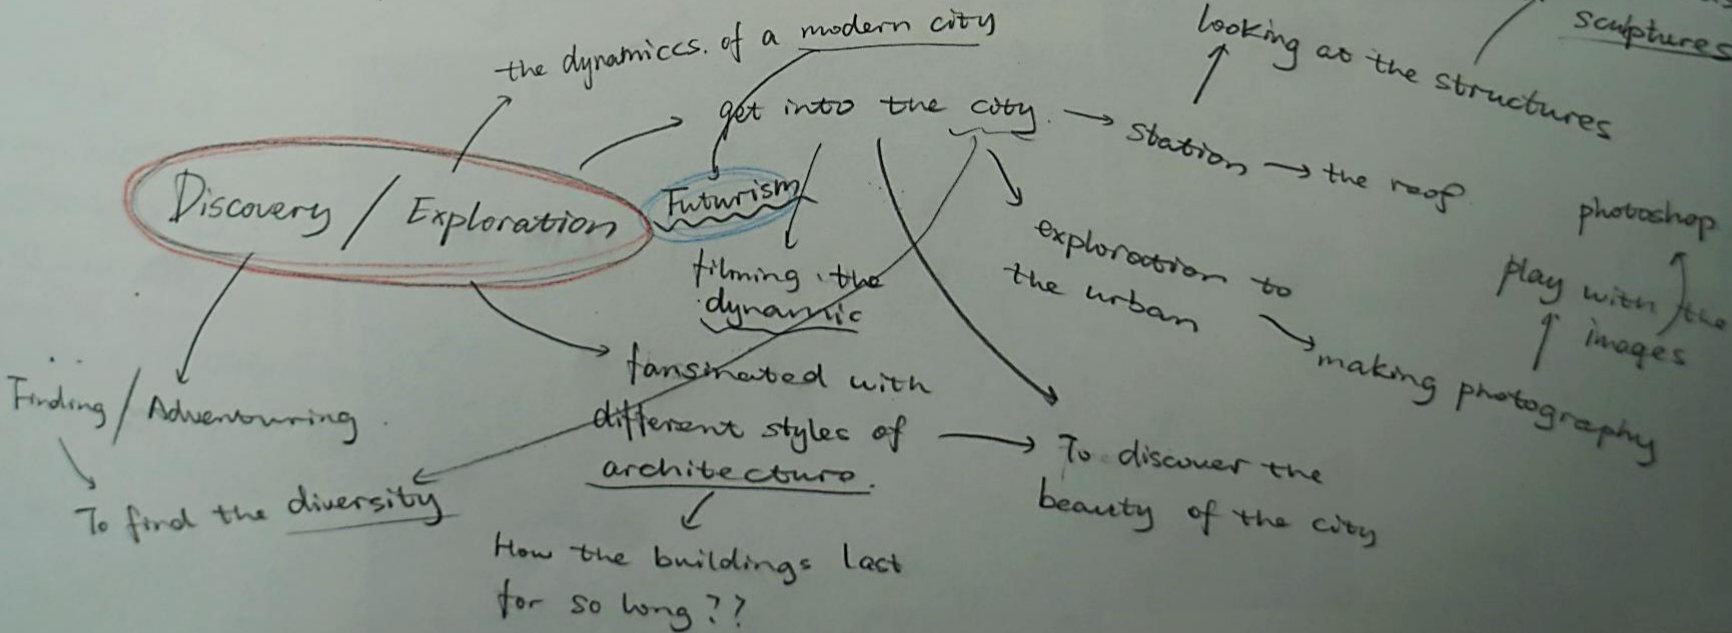 the dynamiccs. of a modern city
looking at the structures
sculptures
get into the city.
station → the roof
Discovery / Exploration
Futurism
photoshop
filming the
dynamic
exploration to
the urban
play with the
images
making photography
Finding / Adventuring
fansinated with
different styles of
architecture.
To discover the
beauty of the city
To find the diversity
How the buildings last
for so long??